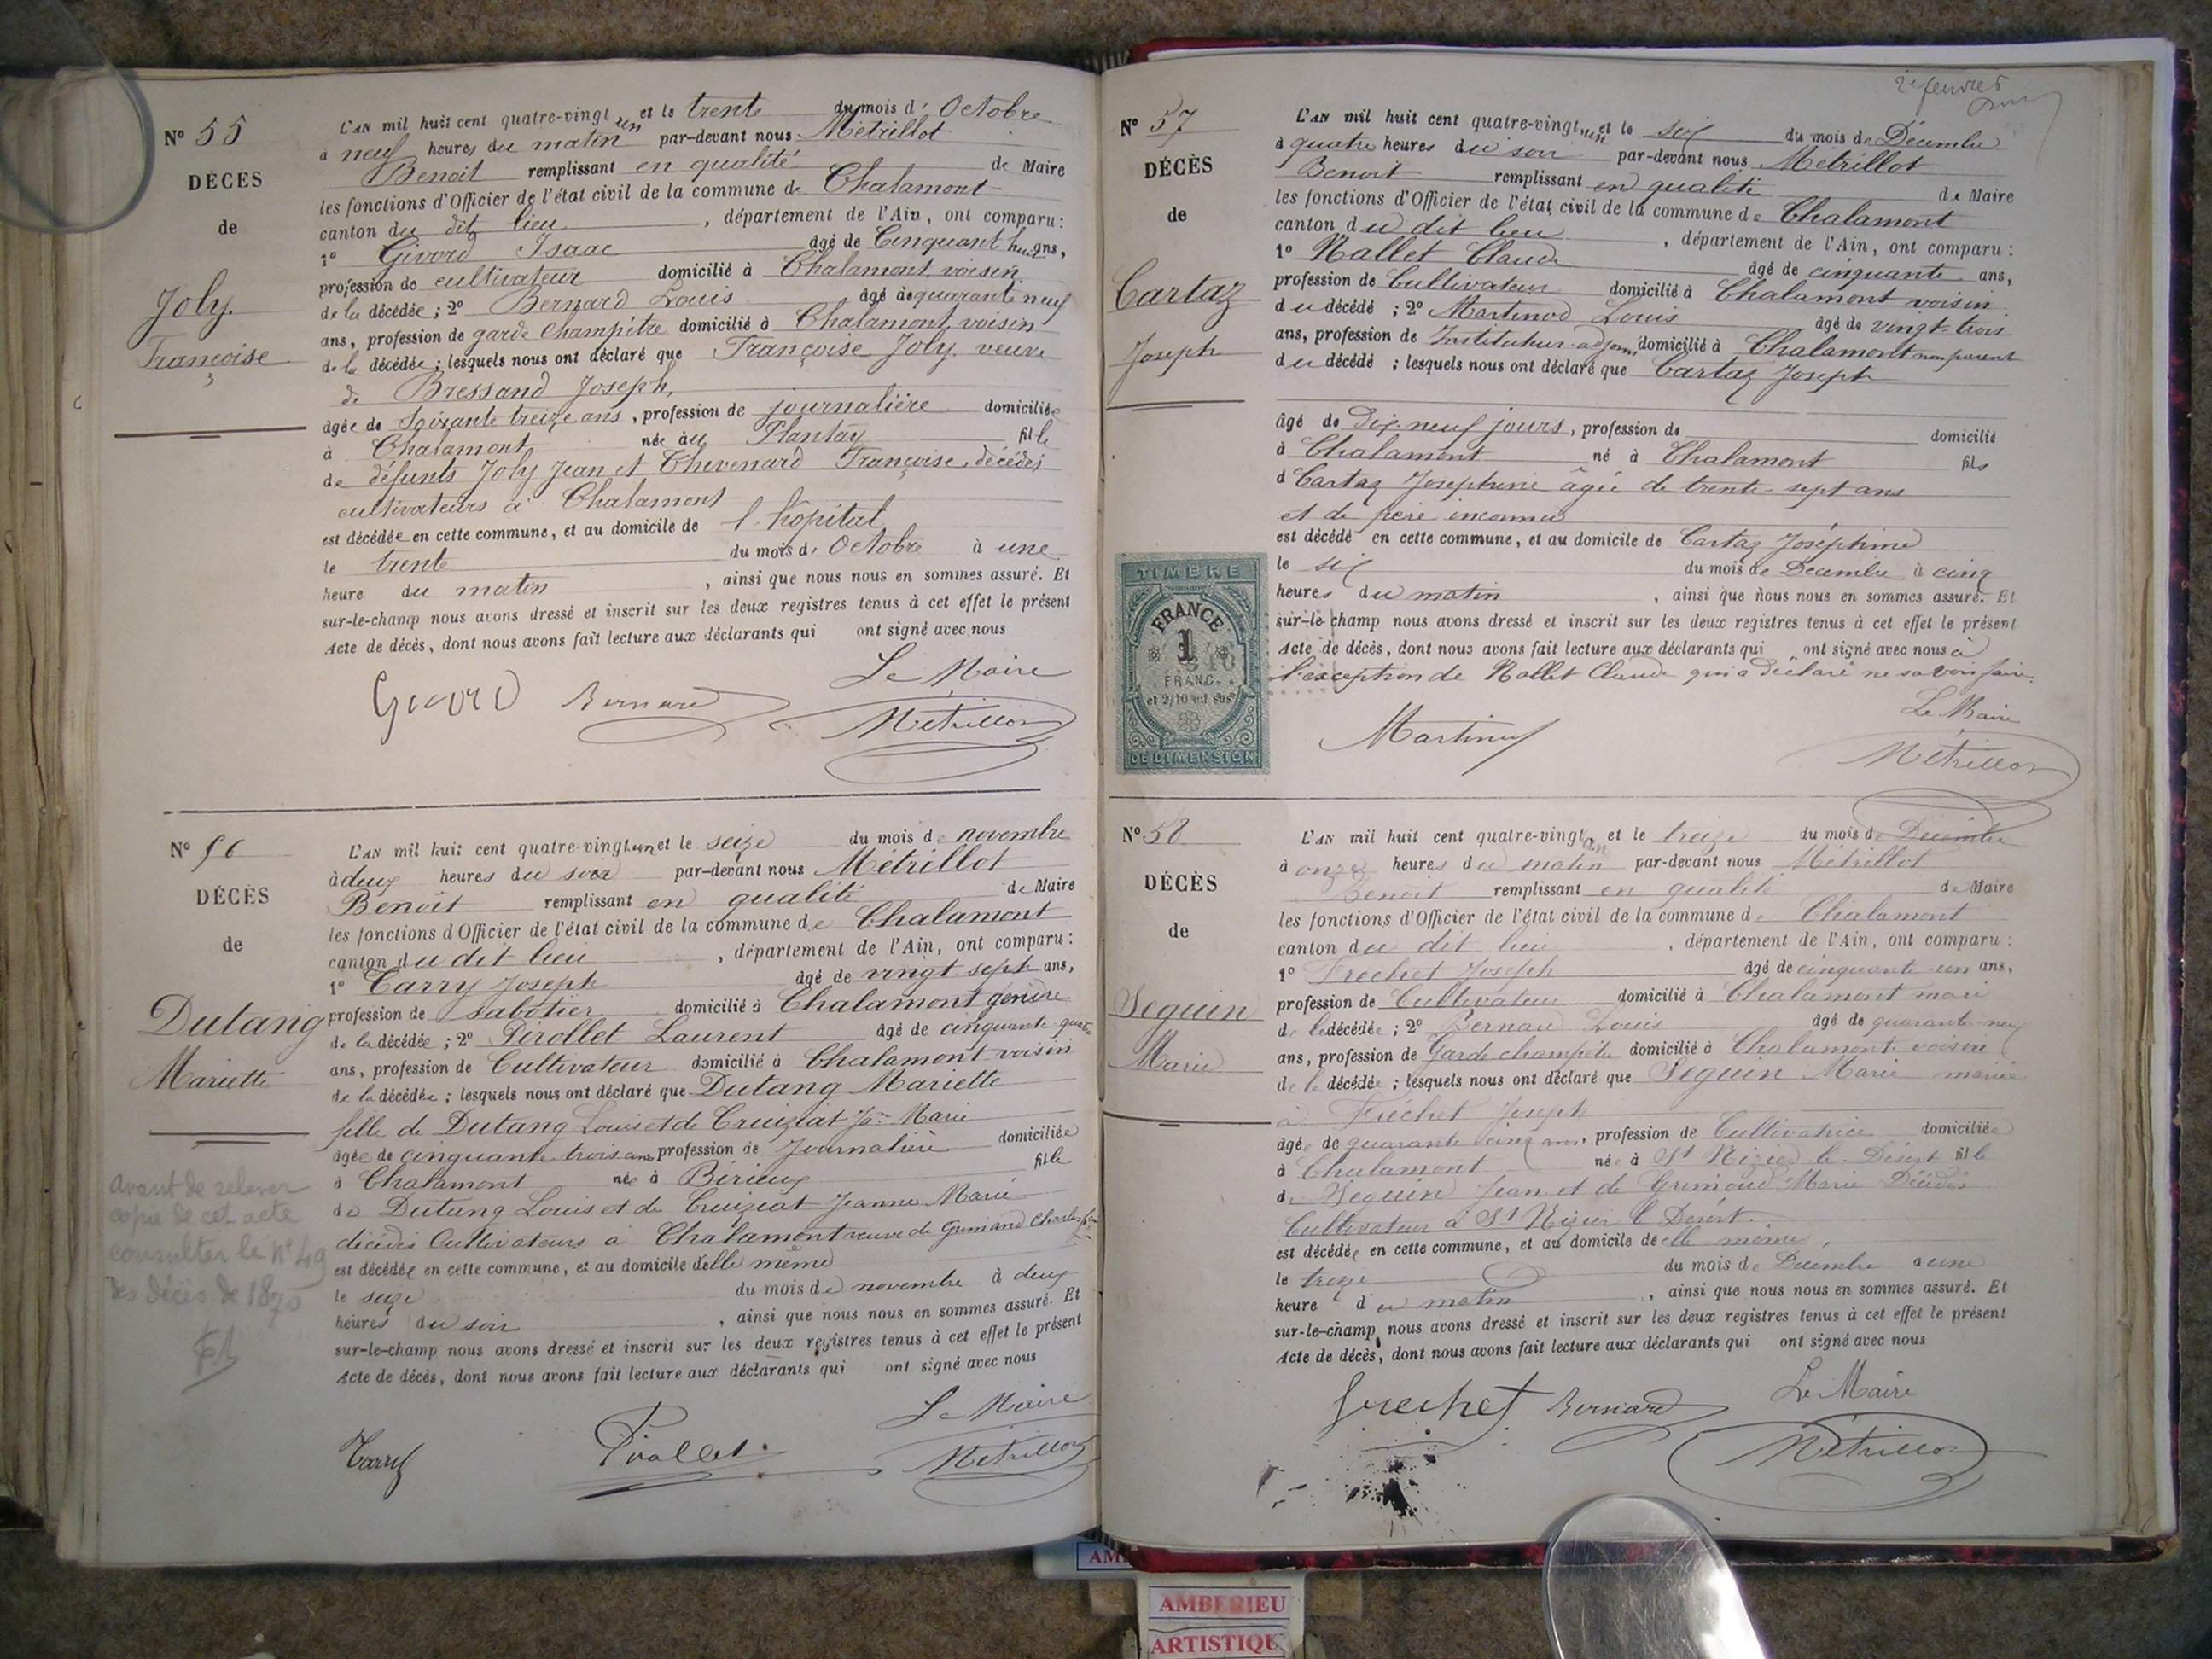 N° 55
DÉCÈS
de
Joly
Françoise
L'AN mil huit cent quatre-vingt un et le trente du mois d'Octobre
à neuf heures du matin par-devant nous Métrillot
Benoit remplissant en qualité de Maire
les fonctions d'Officier de l'état civil de la commune de Chalamont
canton du dit lieu, département de l'Ain, ont comparu:
1° Givord Isaac âgé de Cinquant huit ans,
profession de cultivateur domicilié à Chalamont voisin
de la décédée; 2° Bernard Louis âgé de quarante neuf
ans, profession de garde champêtre domicilié à Chalamont, voisin
de la décédée; lesquels nous ont déclaré que Françoise Joly veuve
de Bressand Joseph,
âgée de Soixante treize ans, profession de journalière domiciliée
à Chalamont née au Plantay fille
de défunts Joly Jean et Thevenard Françoise, décédés
cultivateurs à Chalamont
est décédée en cette commune, et au domicile de l'hôpital
le trente du mois d'Octobre à une
heure du matin, ainsi que nous nous en sommes assuré. Et
sur-le-champ nous avons dressé et inscrit sur les deux registres tenus à cet effet le présent
Acte de décès, dont nous avons fait lecture aux déclarants qui ont signé avec nous
Le Maire
Givord Bernard Métrillot
N° 56
DÉCÈS
de
Dutang
Mariette
avant de relever
copie de cet acte
consulter le N° 49
des décès de 1870
L'AN mil huit cent quatre-vingt un et le seize du mois de novembre
à deux heures du soir par-devant nous Métrillot
Benoit remplissant en qualité de Maire
les fonctions d'Officier de l'état civil de la commune de Chalamont
canton du dit lieu, département de l'Ain, ont comparu:
1° Carry Joseph âgé de vingt sept ans,
profession de sabotier domicilié à Chalamont gendre
de la décédée; 2° Pirollet Laurent âgé de cinquante quatre
ans, profession de Cultivateur domicilié à Chalamont voisin
de la décédée; lesquels nous ont déclaré que Dutang Mariette
fille de Dutang Louis et de Cruiziat Jne Marie
âgée de cinquante trois ans profession de Journalière domiciliée
à Chalamont née à Birieux fille
de Dutang Louis et de Cruiziat Jeanne Marie
décédés Cultivateurs à Chalamont veuve de Grimand Charles
est décédée en cette commune, et au domicile d'elle même
le seize du mois de novembre à deux
heures du soir, ainsi que nous nous en sommes assuré. Et
sur-le-champ nous avons dressé et inscrit sur les deux registres tenus à cet effet le présent
Acte de décès, dont nous avons fait lecture aux déclarants qui ont signé avec nous
Le Maire
Carry Pirollet Métrillot
N° 57
DÉCÈS
de
Cartaz
Joseph
L'AN mil huit cent quatre-vingt un et le six du mois de Décembre
à quatre heures du soir par-devant nous Métrillot
Benoit remplissant en qualité de Maire
les fonctions d'Officier de l'état civil de la commune de Chalamont
canton du dit lieu, département de l'Ain, ont comparu:
1° Nallet Claude âgé de cinquante ans,
profession de Cultivateur domicilié à Chalamont voisin
du décédé; 2° Martinod Louis âgé de vingt-trois
ans, profession de Instituteur-adjoint domicilié à Chalamont non parent
du décédé; lesquels nous ont déclaré que Cartaz Joseph
âgé de Dix-neuf jours, profession de domicilié
à Chalamont né à Chalamont fils
d Cartaz Josephine âgée de trente-sept ans
et de père inconnu
est décédé en cette commune, et au domicile de Cartaz Joséphine
le six du mois de Décembre à cinq
heures du matin, ainsi que nous nous en sommes assuré. Et
sur-le-champ nous avons dressé et inscrit sur les deux registres tenus à cet effet le présent
Acte de décès, dont nous avons fait lecture aux déclarants qui ont signé avec nous à
l'exception de Nallet Claude qui a déclaré ne savoir faire.
Le Maire
Martinod Métrillot
TIMBRE
FRANCE
1
FRANC.
et 2/10 en sus
DE DIMENSION
N° 58
DÉCÈS
de
Seguin
Marie
L'AN mil huit cent quatre-vingt un et le treize du mois de Décembre
à onze heures du matin par-devant nous Métrillot
Benoit remplissant en qualité de Maire
les fonctions d'Officier de l'état civil de la commune de Chalamont
canton du dit lieu, département de l'Ain, ont comparu:
1° Frechet Joseph âgé de cinquante-un ans,
profession de Cultivateur domicilié à Chalamont mari
de la décédée; 2° Bernard Louis âgé de quarante-neuf
ans, profession de Garde champêtre domicilié à Chalamont voisin
de la décédée; lesquels nous ont déclaré que Seguin Marie mariée
à Fréchet Joseph
âgée de quarante cinq ans, profession de Cultivatrice domiciliée
à Chalamont née à St Nizier le Désert fille
de Seguin Jean et de Grimoud Marie Décédés
Cultivateurs à St Nizier le Désert.
est décédée en cette commune, et au domicile de elle même,
le treize du mois de Décembre à une
heure du matin, ainsi que nous nous en sommes assuré. Et
sur-le-champ nous avons dressé et inscrit sur les deux registres tenus à cet effet le présent
Acte de décès, dont nous avons fait lecture aux déclarants qui ont signé avec nous
Le Maire
Frechet Bernard Métrillot
AMBERIEU
ARTISTIQU